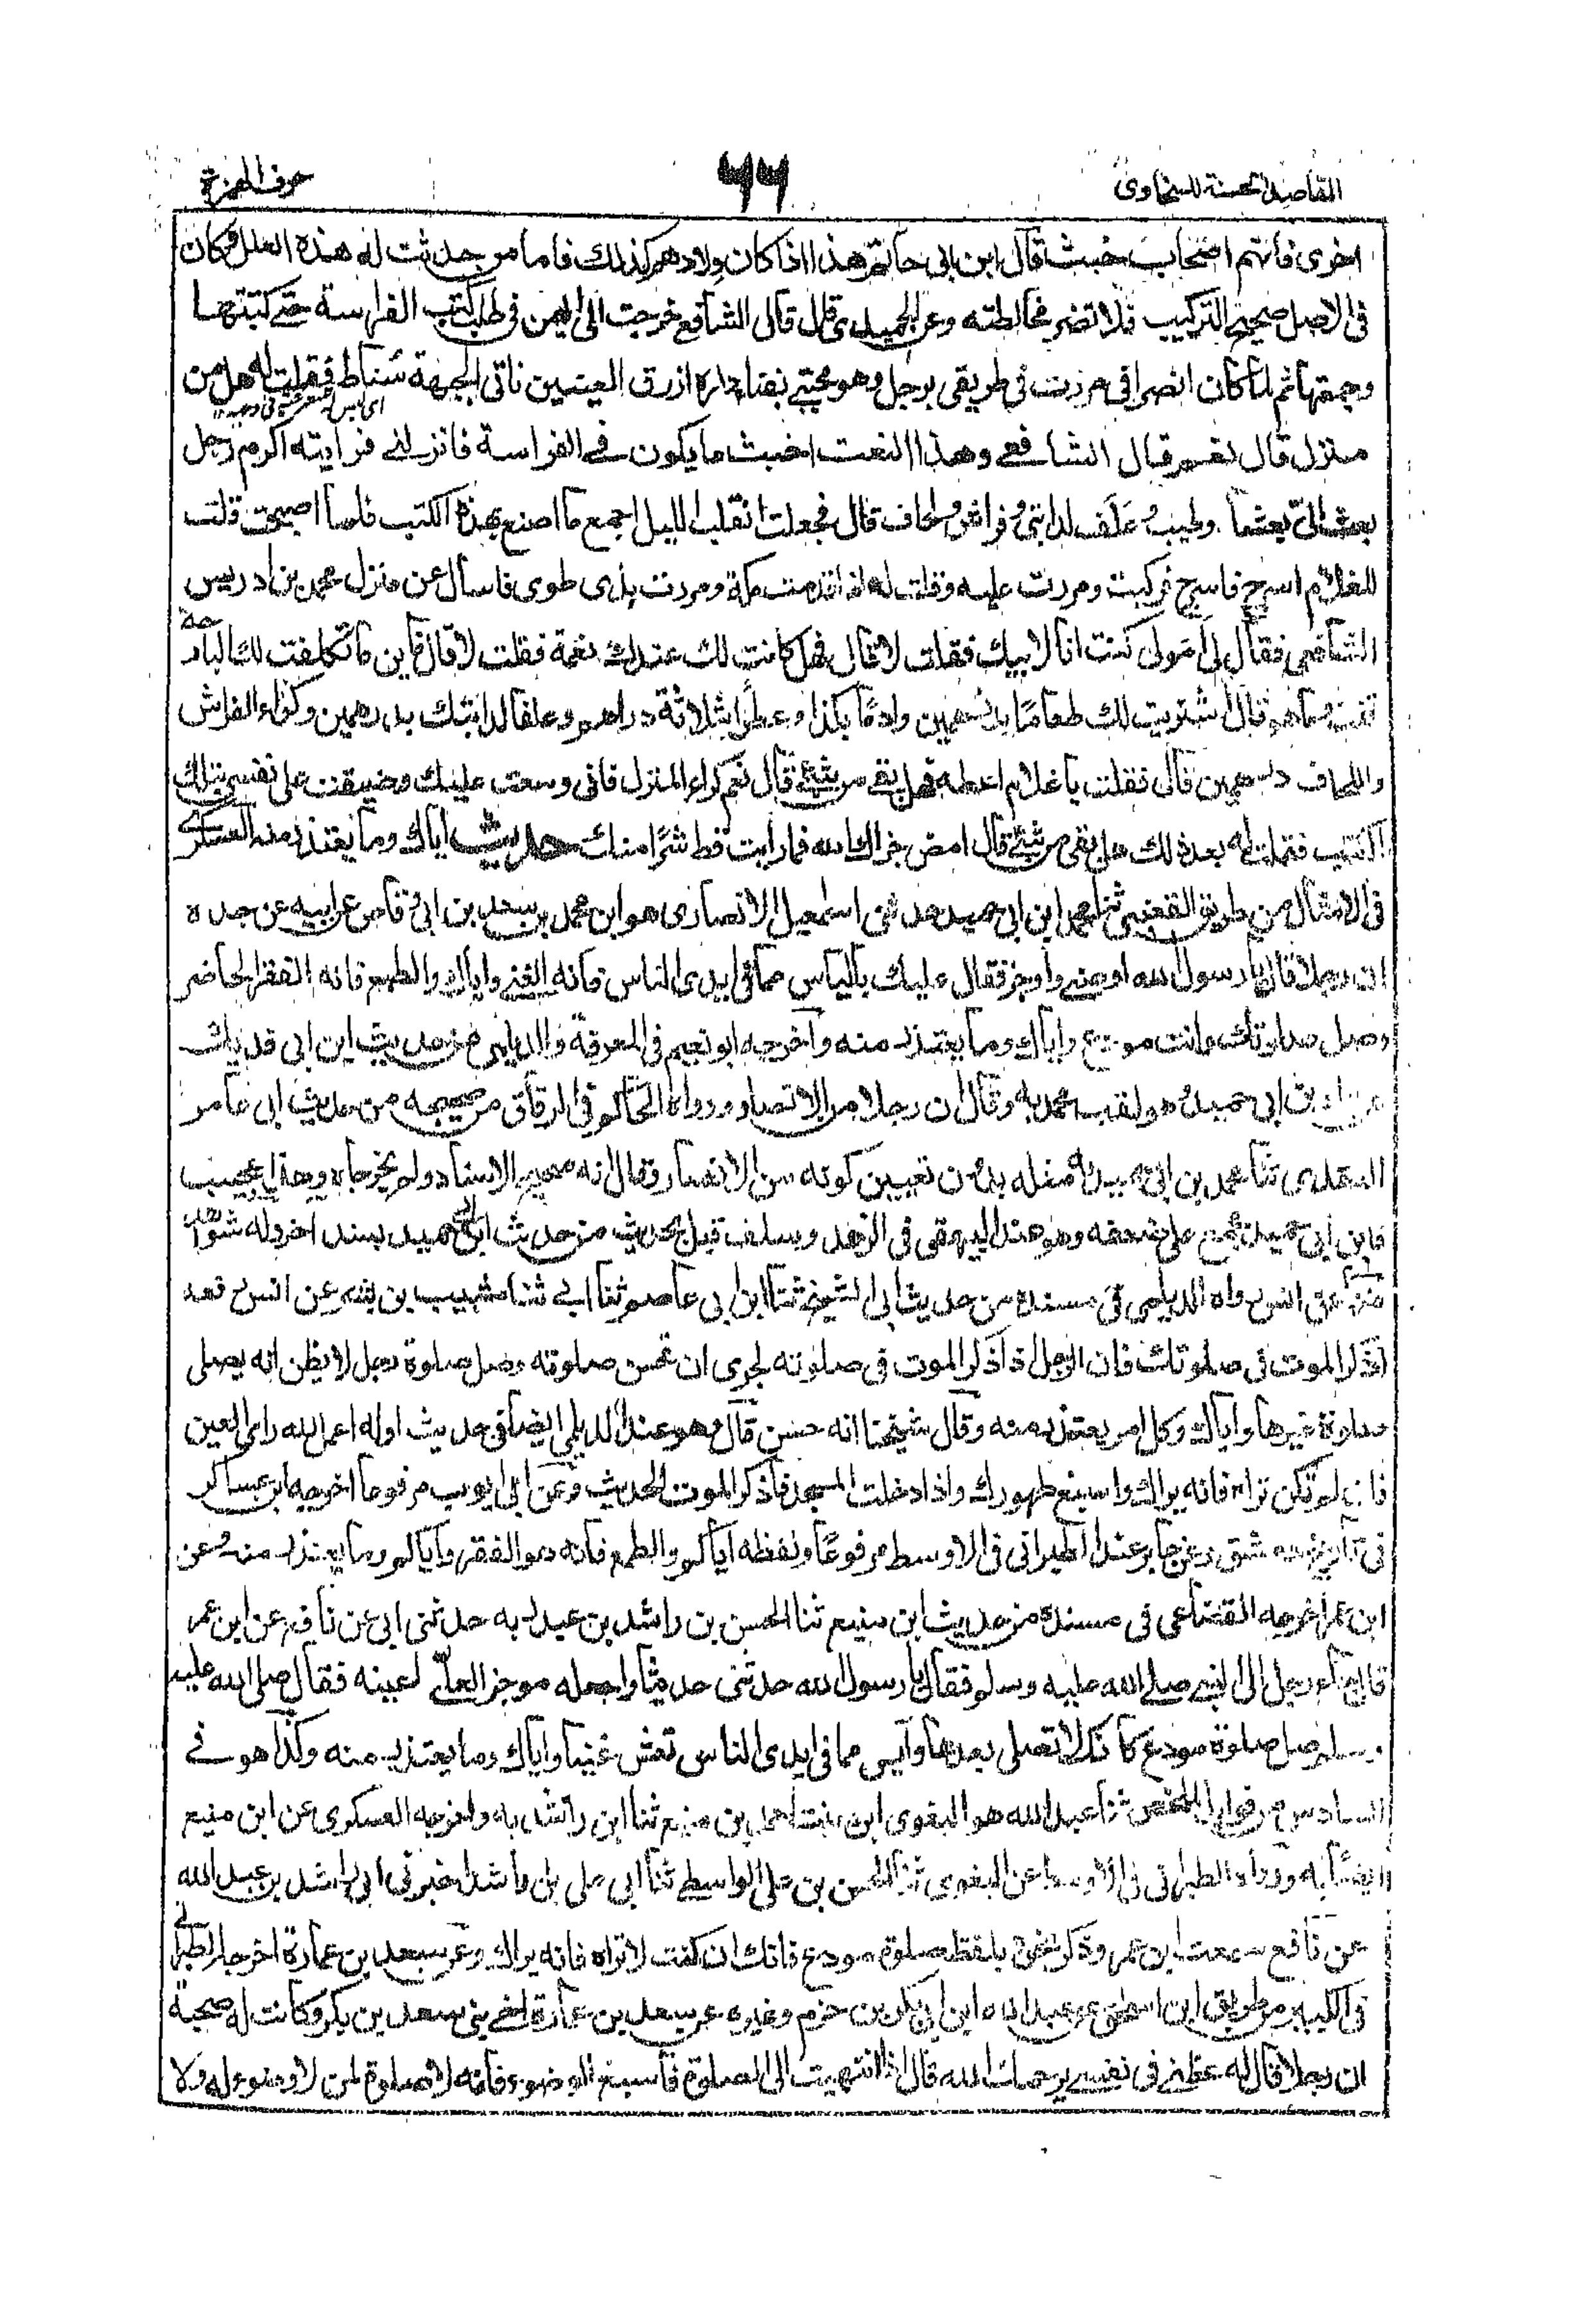 المقاصد الحسنة للسخاوى
٦٦
حرف الهمزة
اخرى فانهم اصحاب خبث قال ابن ابى حاتم هذا اذا كان ولادهم كذلك فاما من حدثت له هذه العلل وكان
فى الاصل صحيح التركيب فلا تضر مخالطته وعن الحميدى قال قال الشافعى خرجت الى اليمن فى طلب كتب الفراسة حتى كتبتها
وجمعتها ثم لما كان انصرافى مررت فى طريقى برجل وهو محتبى بفناء داره ازرق العينين ناتى الجبهة سناط فقلت له هل من
منزل قال نعم قال الشافعى وهذا النعت اخبث ما يكون فى الفراسة فانزلنى فرايته اكرم رجل
بعث الىّ بعشا وطيب وعلف لدابتى وفراش ولحاف قال فجعلت اتقلب الليل اجمع ما اصنع بهذه الكتب فلما اصبحت قلت
للغلام اسرج فاسرج فركبت ومررت عليه وقلت له اذا قدمت مكة ومررت بذى طوى فاسأل عن منزل محمد بن ادريس
الشافعى فقال لى أمولى كنت انا لابيك فقلت لا قال فهل كانت لك عندى نعمة فقلت لا قال فاين ما تكلفت لك البارحة
قلت وما هو قال اشتريت لك طعامًا بدرهمين وادمًا بكذا وعطرًا بثلاثة دراهم وعلفا لدابتك بدرهمين وكراء الفراش
واللحاف درهمين قال فقلت يا غلام اعطه فهل بقى من شئ قال نعم كراء المنزل فانى وسعت عليك وضيقت على نفسى بتلك
الكتب فقلت له بعد ذلك هل بقى من شئ قال امض جزاك الله فما رايت قط شرًا منك حديث اياك وما يعتذر منه العسكرى
فى الامثال من طريق القعنبى ثنا محمد ابن ابى حميد حدثنى اسمعيل الانصارى هو ابن محمد بن سعد بن ابى وقاص عن ابيه عن جده
ان رجلا قال يا رسول الله اوصنى واوجز فقال عليك بالياس مما فى ايدى الناس فانه الغنى واياك والطمع فانه الفقر الحاضر
وصل صلوتك وانت مودع واياك وما يعتذر منه واخرجه ابو نعيم فى المعرفة والديلمى من حديث ابن ابى فديك
عن حماد بن ابى حميد وهو لقب محمد به وقال ان رجلا من الانصار ورواه الحاكم فى الرقاق من صحيحه من حديث ابى عامر
العقدى ثنا محمد بن ابى حميد مثله بدون تعيين كونه من الانصار وقال انه صحيح الاسناد ولم يخرجاه وهذا عجيب
فابن ابى حميد مجمع على ضعفه وهو عند البيهقى فى الزهد وسلف قبل بحديث من حديث ابن ابى حميد بسند اخر وله شواهد
منها عن انس رواه الديلمى فى مسنده من حديث ابى الشيخ ثنا ابن ابى عاصم ثنا ابى ثنا شبيب بن بشر عن انس رفعه
اذكر الموت فى صلوتك فان الرجل اذا ذكر الموت فى صلوته لحرى ان تحسن صلوته وصل صلوة رجل لا يظن انه يصلى
صلوة غيرها واياك وكل امر يعتذر منه وقال شيخنا انه حسن قال وهو عند الديلمى ايضا فى حديث اوله اعمل لله راى العين
فان لم تكن تراه فانه يراك واسبغ طهورك واذا دخلت المسجد فاذكر الموت الحديث وعن ابى ايوب مرفوعا اخرجه ابن عساكر
فى تاريخ دمشق وعن جابر عند الطبرانى فى الاوسط مرفوعًا ولفظه اياكم والطمع فانه هو الفقر واياكم وما يعتذر منه وعن
ابن عمر اخرجه القضاعى فى مسنده من حديث ابن منيع ثنا الحسن بن راشد بن عبد ربه حدثنى ابى عن نافع عن ابن عمر
قال جاء رجل الى النبى صلى الله عليه وسلم فقال يا رسول الله حدثنى حديثا واجعله موجز العلّى لعينه فقال صلى الله عليه
وسلم صل صلوة مودع كانك لا تصلى بعدها وآيس مما فى ايدى الناس تعش غنيا واياك وما يعتذر منه وكذا هو فى
السادس من فوايد المخلص ثنا عبد الله هو البغوى ابن بنت احمد بن منيع ثنا ابن راشد به واخرجه العسكرى عن ابن منيع
ايضًا به ورواه الطبرانى فى الاوسط عن البغوى ثنا الحسن بن على الواسطى ثنا ابى على بن راشد اخبرنى ابى راشد بن عبد الله
عن نافع سمعت ابن عمر وذكر نحوه بلفظ صلوة مودع فانك ان كنت لا تراه فانه يراك وعن سعد بن عمارة اخرجه الطبرانى
فى الكبير من طريق ابن اسحق عن عبد الله ابن ابى بكر بن حزم وغيره عن سعد بن عمارة اخى بنى سعد بن بكر وكانت له صحبة
ان رجلا قال له عظنى فى نفسى يرحمك الله قال اذا انتهيت الى الصلوة فاسبغ الوضوء فانه لا صلوة لمن لا وضوء له ولا